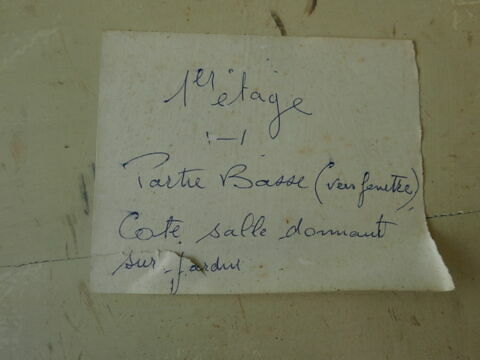 1er étage
:-1
Partie Basse (vers fenêtre)
Coté salle donnant
sur jardin